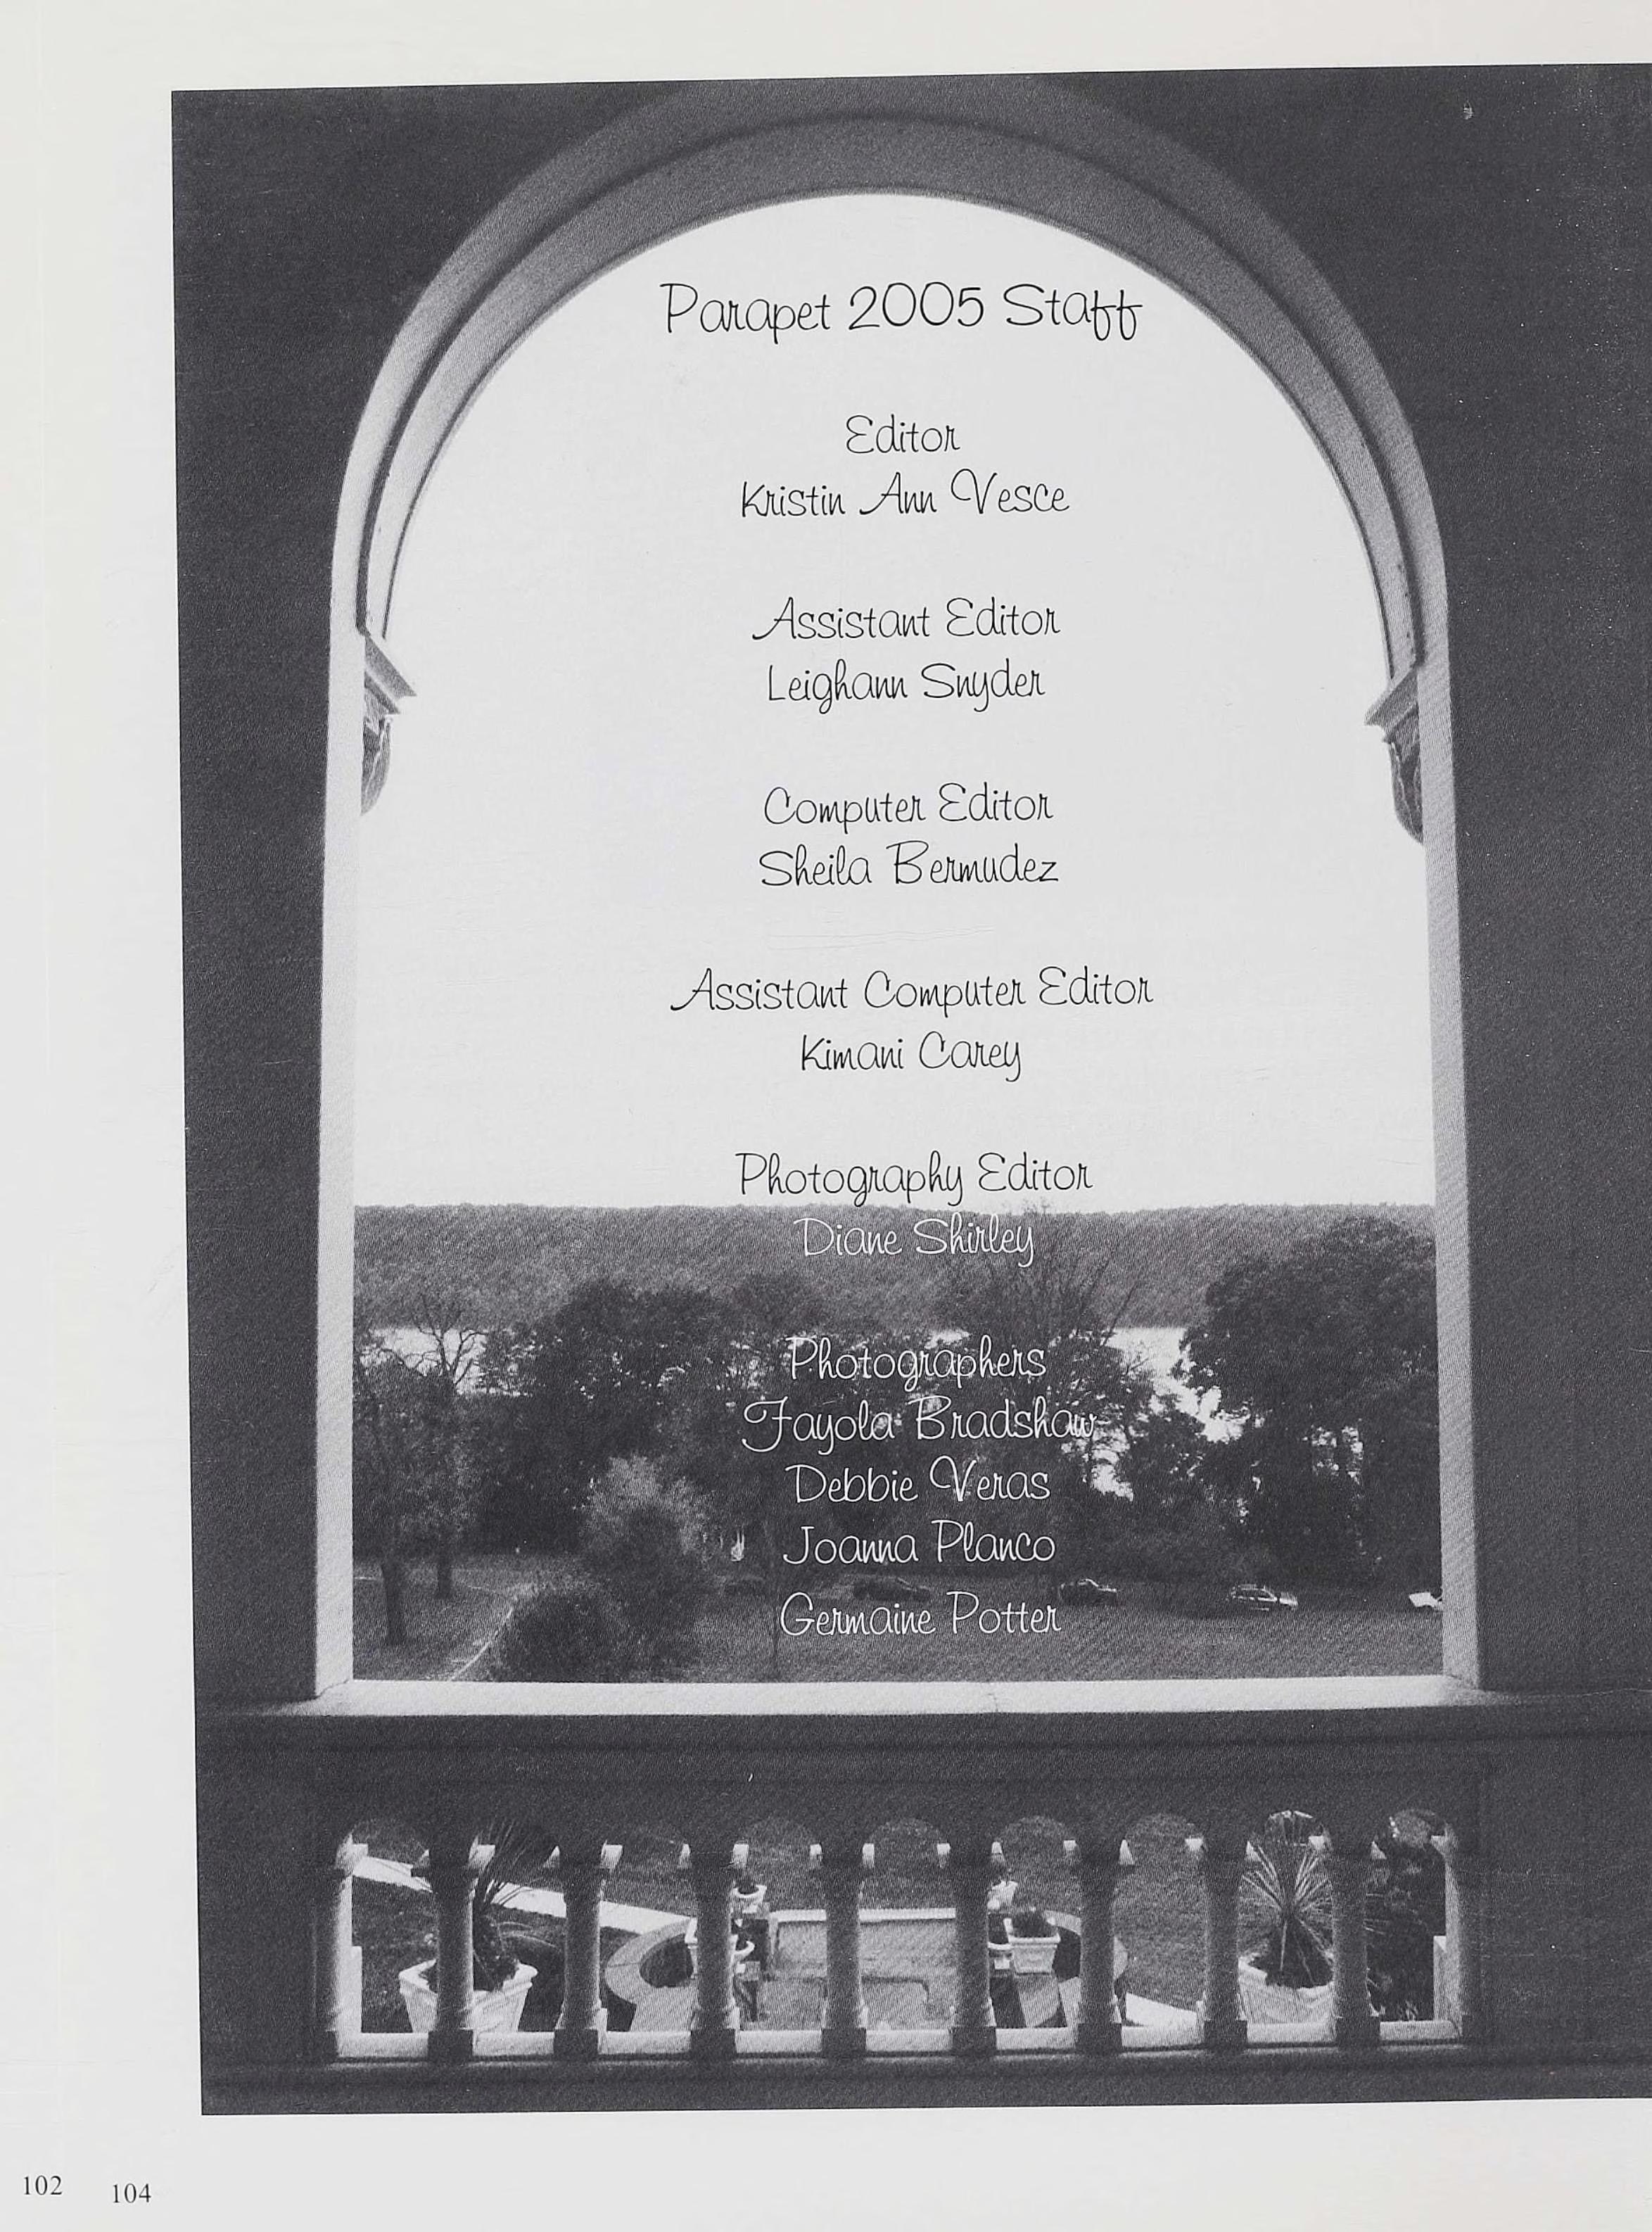 Parapet 2005 Staff
Editor
Kristin Ann Vesce
Assistant Editor
Leighann Snyder
Computer Editor
Sheila Bermudez
Assistant Computer Editor
Kimani Carey
Photography Editor
Diane Shirley
Photographers
Fayola Bradshaw
Debbie Veras
Joanna Planco
Germaine Potter
102 104